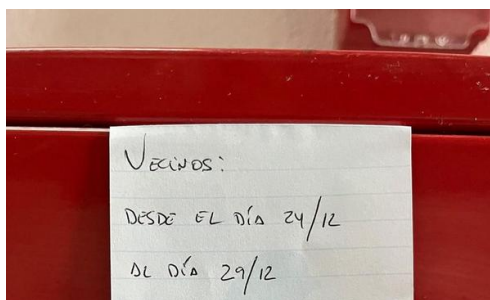 VECINOS:
DESDE EL DÍA 24/12
AL DÍA 29/12